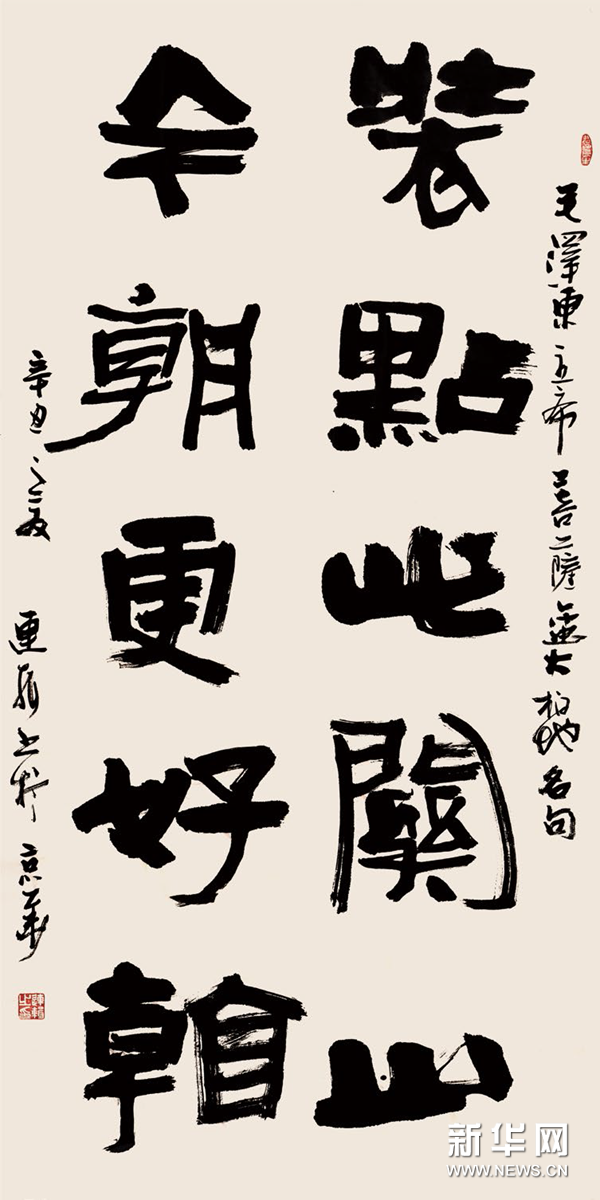 毛澤東主席菩薩蠻大柏地名句
裝點此關山
今朝更好看
辛丑之夏 書於京華
新华网
WWW.NEWS.CN